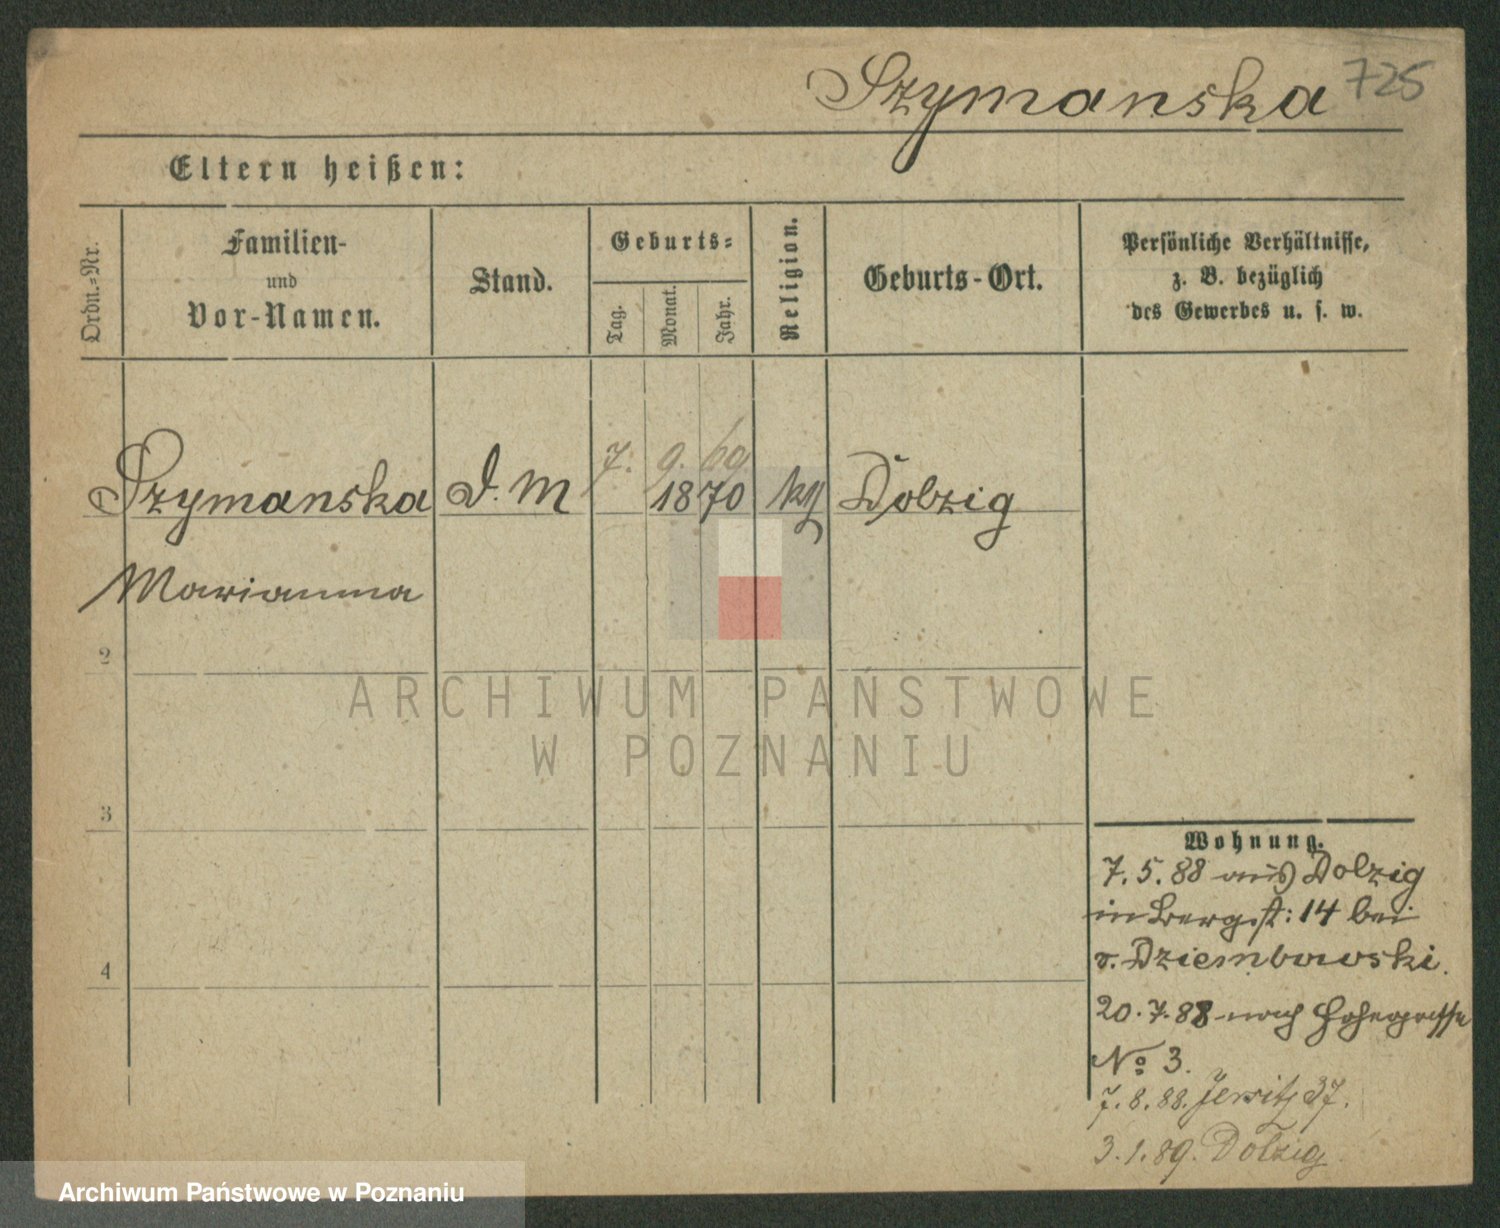 Szymanska 725
Eltern heißen:
Ordn.-Nr.
Familien-
und
Vor-Namen.
Stand.
Geburts-
Tag.
Monat.
Jahr.
Religion.
Geburts-Ort.
Persönliche Verhältnisse,
z. B. bezüglich
des Gewerbes u. s. w.
7. 9. 69
1 Szymanska D. M 1870 kth Dolzig
Marianna
2
3
4
ARCHIWUM PAŃSTWOWE
W POZNANIU
Wohnung.
7. 5. 88 aus Dolzig
in Bergst: 14 bei
v. Dziembowski.
20. 7. 88 nach Hohegasse
No 3.
7. 8. 88. Jersitz 37.
3. 1. 89. Dolzig
Archiwum Państwowe w Poznaniu